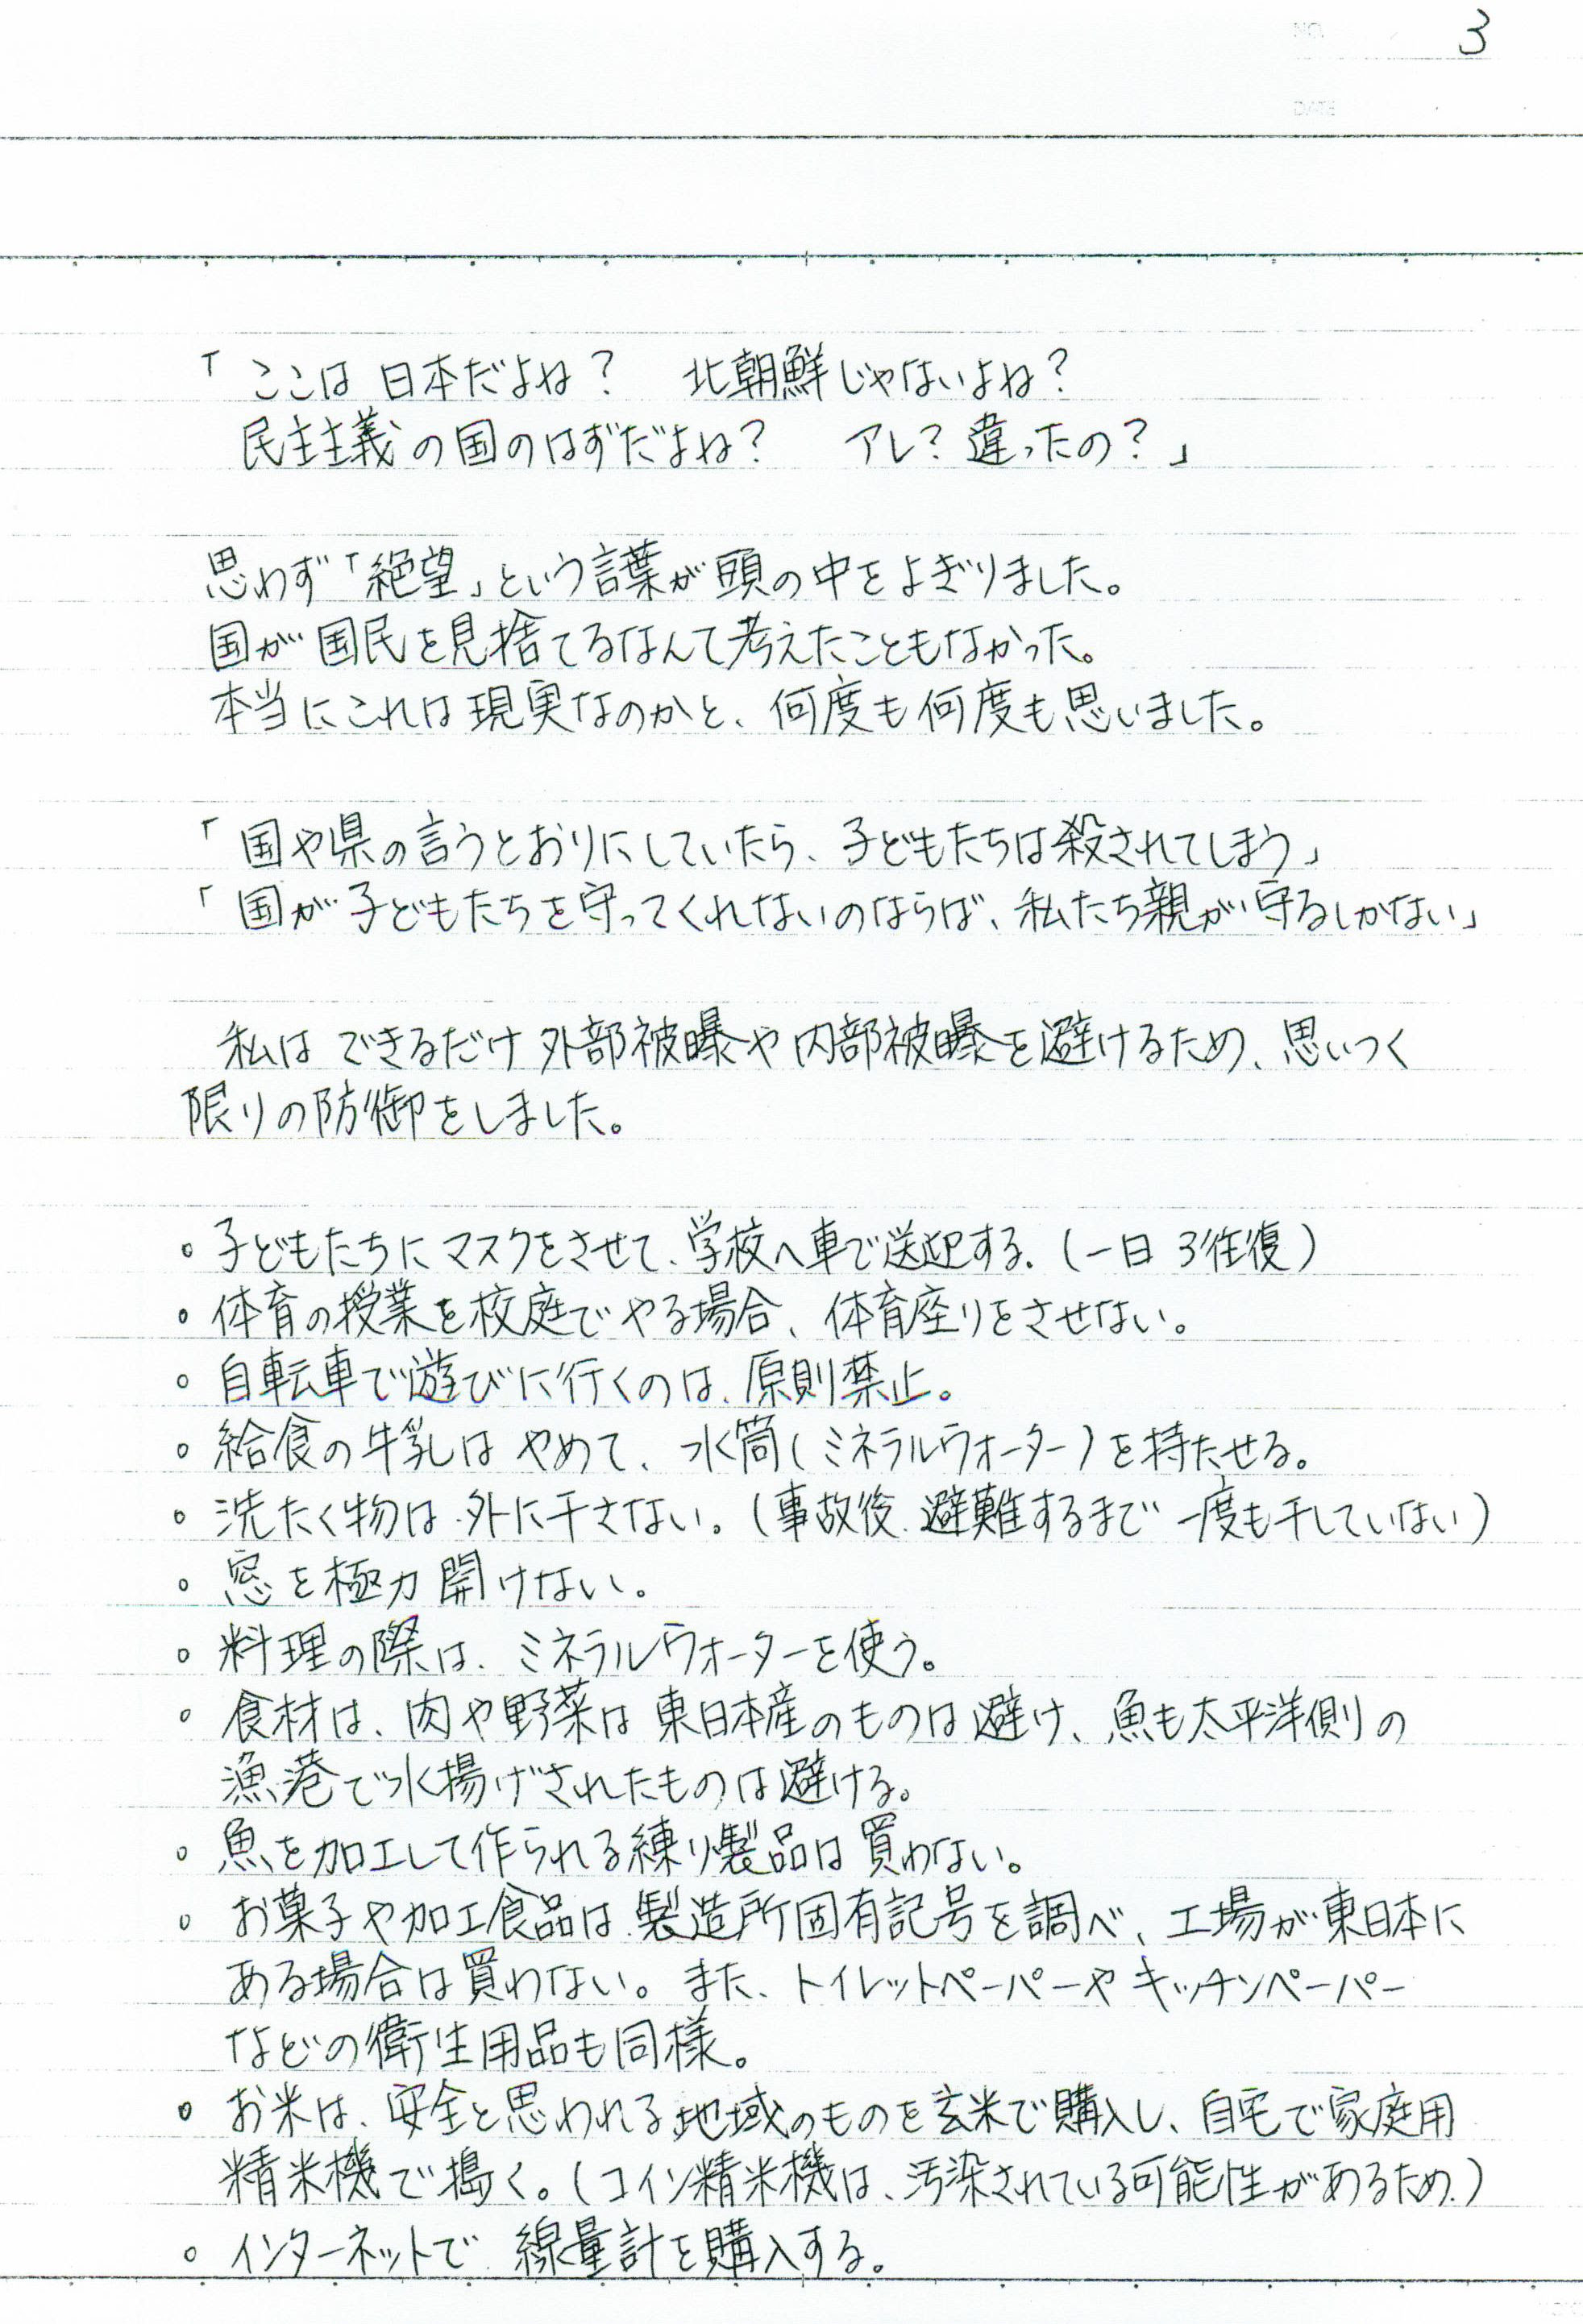 NO. 3
DATE
「ここは日本だよね？　北朝鮮じゃないよね？
民主主義の国のはずだよね？　アレ？違ったの？」
思わず「絶望」という言葉が頭の中をよぎりました。
国が国民を見捨てるなんて考えたこともなかった。
本当にこれは現実なのかと、何度も何度も思いました。
「国や県の言うとおりにしていたら、子どもたちは殺されてしまう」
「国が子どもたちを守ってくれないのならば、私たち親が守るしかない」
私はできるだけ外部被曝や内部被曝を避けるため、思いつく
限りの防御をしました。
。子どもたちにマスクをさせて、学校へ車で送迎する。（一日3往復）
。体育の授業を校庭でやる場合、体育座りをさせない。
。自転車で遊びに行くのは、原則禁止。
。給食の牛乳はやめて、水筒（ミネラルウォーター）を持たせる。
。洗たく物は外に干さない。（事故後、避難するまで一度も干していない）
。窓を極力開けない。
。料理の際は、ミネラルウォーターを使う。
。食材は、肉や野菜は東日本産のものは避け、魚も太平洋側の
漁港で水揚げされたものは避ける。
。魚を加工して作られる練り製品は買わない。
。お菓子や加工食品は、製造所固有記号を調べ、工場が東日本に
ある場合は買わない。また、トイレットペーパーやキッチンペーパー
などの衛生用品も同様。
。お米は、安全と思われる地域のものを玄米で購入し、自宅で家庭用
精米機で搗く。（コイン精米機は、汚染されている可能性があるため。）
。インターネットで、線量計を購入する。